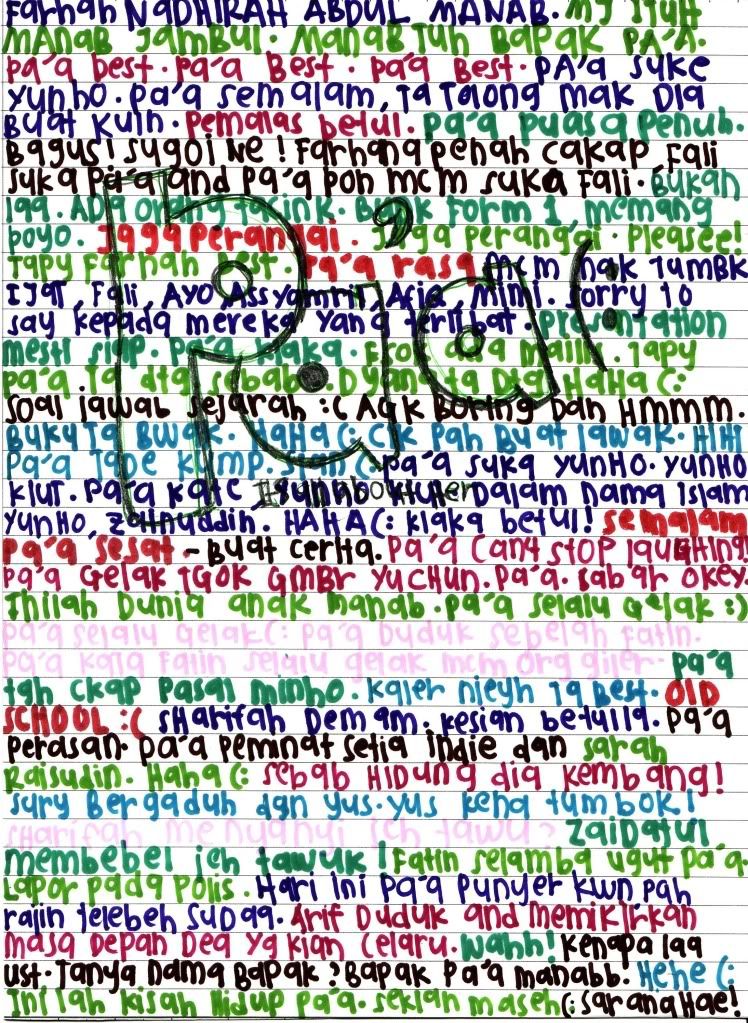 Farhah NADHIRAH ABDUL MANAB. My ITUH
MANAB JAMBUL. MANAB TUH BAPAK PA'A.
pa'a best. pa'a Best. pa'a Best. PA'a suke
yunho. pa'a semalam, ta Tolong mak Dia
Buat Kuih. Pemalas betul. pa'a puasa Penuh.
Bagus! Sugoi Ne! Farhana penah cakap Fali
suka Pa'a and Pa'a pon mcm suka Fali. Bukan
laa. ADa orang pink. Budak Form 1, memang
poyo. Jaga Perangai. Jaga perangai. Please!
Tapy Farhah Best. Pa'a rasa mcm nak TumBK
IJat, Fali, Ayo, Assyamril, Afiq, Mimi. Sorry to
say kepada mereka yang terlibat. Presentation
mesti siap. Pa'a. Tapy
pa'a. Ta dta sebab. Dyana ta Dtg. HaHa (:
Soal jawab sejarah :( Agk Boring Dan Hmmm.
BUKU Ta BWak. HaHa (: Cik Pah Buat lawak. HIHI
Pa'a pa'a suka yunHo. yunHO
kiut. Pa'a kate, Dalam nama islam
yunHo, Zainuddin. HAHA (: klaka betul! semalam
pa'a sesat - Buat cerita. Pa'a Can't stop laughing!
pa'a Gelak TGOK GMBr yuchun. pa'a. sabar okey.
Inilah Dunia anak manab. pa'a selalu Gelak :)
pa'a selalu gelak (: pa'a duduk sebelah Fatin.
pa'a kata Fatin selalu gelak mcm org giler. pa'a
tgh ckap pasal minho. kaler nieyh la Best. OlD
SCHOOL :( sharifah Demam. kesian betulla. pa'a
perasan. pa'a peminat setia indie dan sarah
Raisudin. Haha (: sebab HIDung dia kembang!
sury Bergaduh dgn yus. yus kena tumbok!
sharifah menyanyi ieh tawu? Zaidatul
membebel ieh tawuk! Fatin selamba ugut pa'a
Lapor pada Polis. Hari ini pa'a punyer kwn pah
rajin telebeh sudaa. Arif Duduk and memikirkan
masa Depan Dea yg kian Celaru. Wahh! kenapa laa
ust. Tanya nama Bapak? Bapak Pa'a manabb! Hehe (:
Ini lah kisah Hidup pa'a. sekian maseh (: saranghae!
Pa'a (: